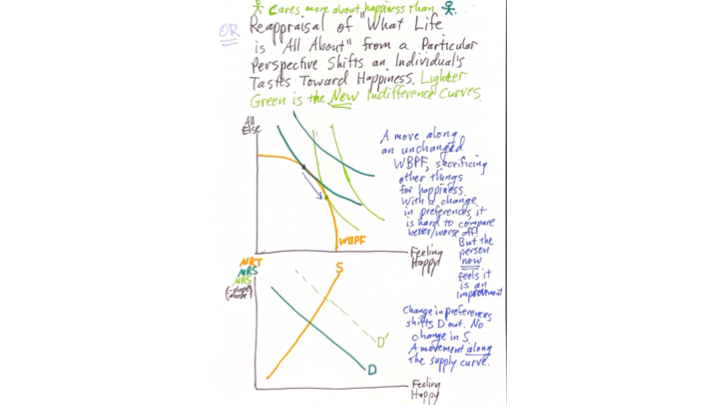 Cares more about happiness than
OR
Reappraisal of "What Life
is "All About" from a Particular
Perspective Shifts an Individual's
Tastes Toward Happiness. Lighter
Green is the New Indifference Curves.
All
Else
A move along
an unchanged
WBPF, sacrificing
other things
for happiness.
With a change
in preferences it
is hard to compare
better/worse off!
But the
person
now
feels it
is an
improvement
WBPF
Feeling
Happy
MRT
MRS
MRS
(-slope
above)
S
D'
D
Change in preferences
shifts D out. No
change in S.
A movement along
the supply curve.
Feeling
Happy